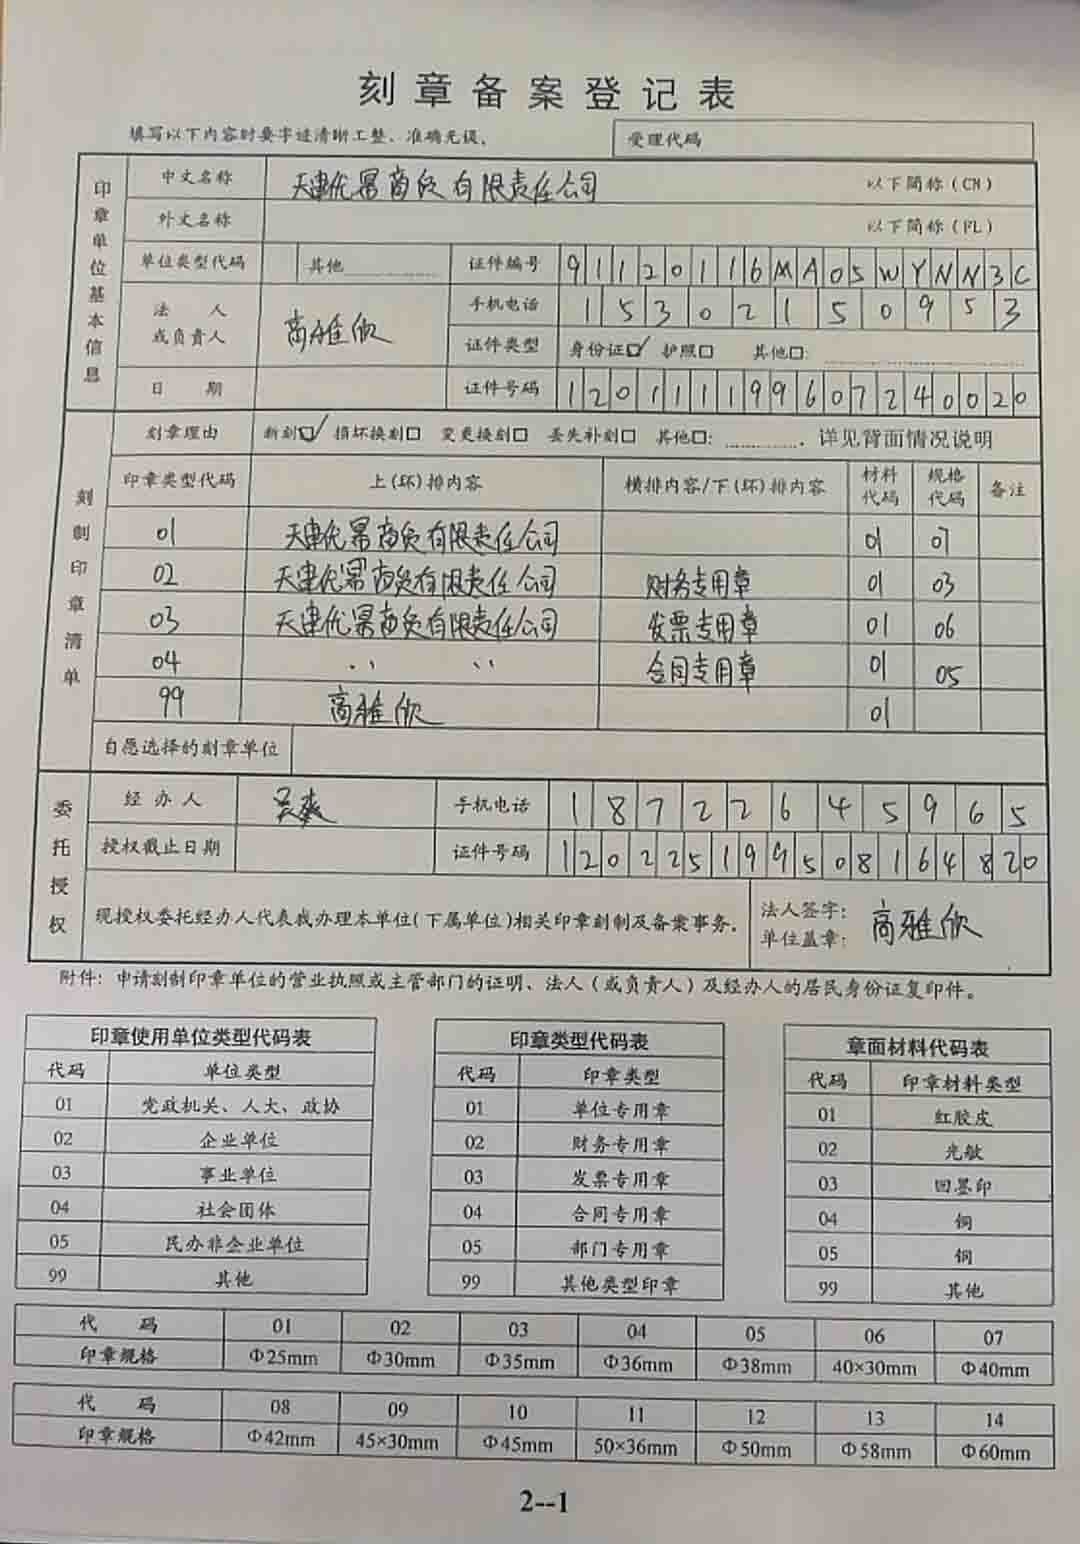 刻章备案登记表
填写以下内容时要字迹清晰工整、准确无误。
受理代码
印章单位基本信息
中文名称 天津优幂商贸有限责任公司 以下简称(CH)
外文名称 以下简称(FL)
单位类型代码 其他 证件编号 91120116MA05WYNN3C
法人或负责人 高雅欣 手机电话 15302150953
证件类型 身份证☑ 护照□ 其他□:
日期 证件号码 120111199607240020
刻制印章清单
刻章理由 新刻☑ 损坏换刻□ 变更换刻□ 丢失补刻□ 其他□: . 详见背面情况说明
印章类型代码 上(环)排内容 横排内容/下(环)排内容 材料代码 规格代码 备注
01 天津优幂商贸有限责任公司 01 07
02 天津优幂商贸有限责任公司 财务专用章 01 03
03 天津优幂商贸有限责任公司 发票专用章 01 06
04 ､､ ､､ 合同专用章 01 05
99 高雅欣 01
自愿选择的刻章单位
委托授权
经办人 吴爽 手机电话 18722645965
授权截止日期 证件号码 120225199508164820
现授权委托经办人代表我办理本单位(下属单位)相关印章刻制及备案事务。
法人签字: 高雅欣
单位盖章:
附件: 申请刻制印章单位的营业执照或主管部门的证明、法人(或负责人)及经办人的居民身份证复印件。
印章使用单位类型代码表
代码 单位类型
01 党政机关、人大、政协
02 企业单位
03 事业单位
04 社会团体
05 民办非企业单位
99 其他
印章类型代码表
代码 印章类型
01 单位专用章
02 财务专用章
03 发票专用章
04 合同专用章
05 部门专用章
99 其他类型印章
章面材料代码表
代码 印章材料类型
01 红胶皮
02 光敏
03 回墨印
04 铜
05 钢
99 其他
代码 01 02 03 04 05 06 07
印章规格 Φ25mm Φ30mm Φ35mm Φ36mm Φ38mm 40×30mm Φ40mm
代码 08 09 10 11 12 13 14
印章规格 Φ42mm 45×30mm Φ45mm 50×36mm Φ50mm Φ58mm Φ60mm
2--1